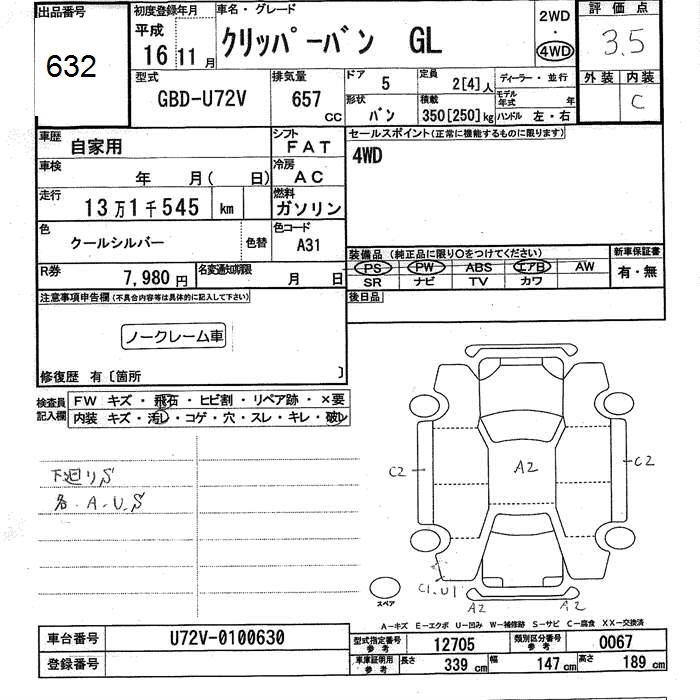 出品番号
632
初度登録年月
平成
16 11 月
車名・グレード
クリッパーバン GL
2WD
・
4WD
評価点
3.5
外装 内装
C
型式
GBD-U72V
排気量
657 CC
ドア 5
定員 2[4] 人
ディーラー・並行
形状 バン
積載 350[250] kg
モデル年式 年
ハンドル 左・右
車歴 自家用
シフト FAT
車検 年 月( 日)
冷房 AC
走行 13万1千545 km
燃料 ガソリン
色 クールシルバー 色替
色コード A31
R券 7,980 円
名変通知期限 月 日
セールスポイント(正常に機能するものに限ります)
4WD
装備品 (純正品に限り○をつけてください)
PS PW ABS エアB AW
SR ナビ TV カワ
新車保証書
有・無
後日品
注意事項申告欄(不具合内容等は具体的に記入して下さい)
ノークレーム車
修復歴 有〔箇所 〕
検査員記入欄
FW キズ・飛石・ヒビ割・リペア跡・×要
内装 キズ・汚レ・コゲ・穴・スレ・キレ・破レ
下廻りS
各.A.U.S
C2
A2
C2
C1.U1
A2
A2
スペア
A−キズ E−エクボ U−凹み W−補修跡 S−サビ C−腐食 XX−交換済
車台番号 U72V-0100630
登録番号
型式指定番号 参考 12705
類別区分番号 参考 0067
車庫証明用 参考 長さ 339 cm 幅 147 cm 高さ 189 cm